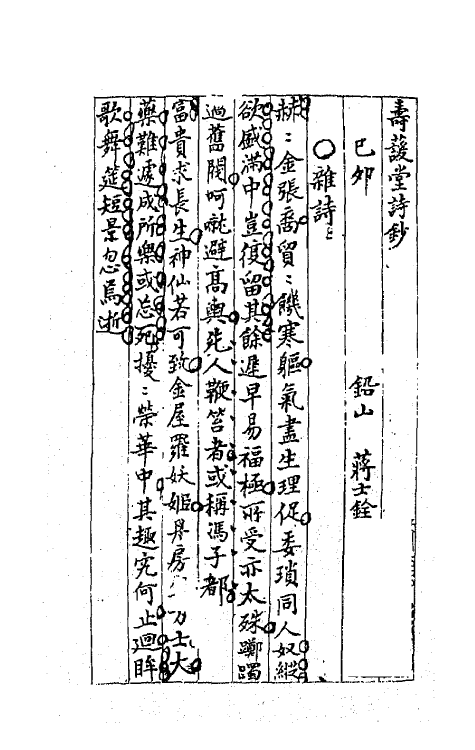 壽萱堂詩鈔
己卯　鉛山　蔣士銓
〇雜詩
赫〻金張裔貿〻饑寒軀氣盡生理促委瑣同人奴縱
欲盛滿中豈復留其餘遲早易福極所受亦太殊躑躅
過舊閥呵噉避高輿先人鞭笞者或稱馮子都
富貴求長生神仙若可致金屋羅妖姬丹房 方士大
藥難遽成所樂或忘死擾〻榮華中其趣究何止迴眸
歌舞筵短景忽焉逝